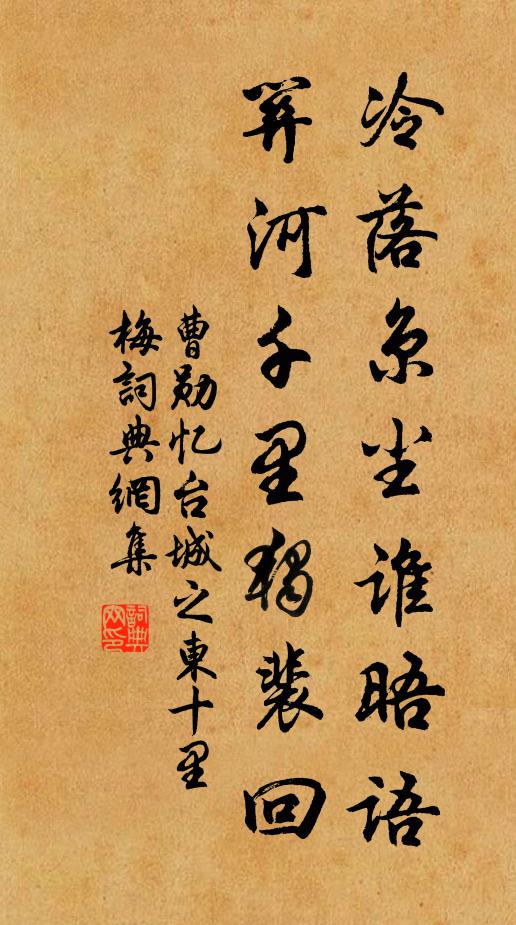 冷落京尘谁晤语
關河千里獨裴回
曹勋忆台城之東十里
梅詞典網集
詞典网印